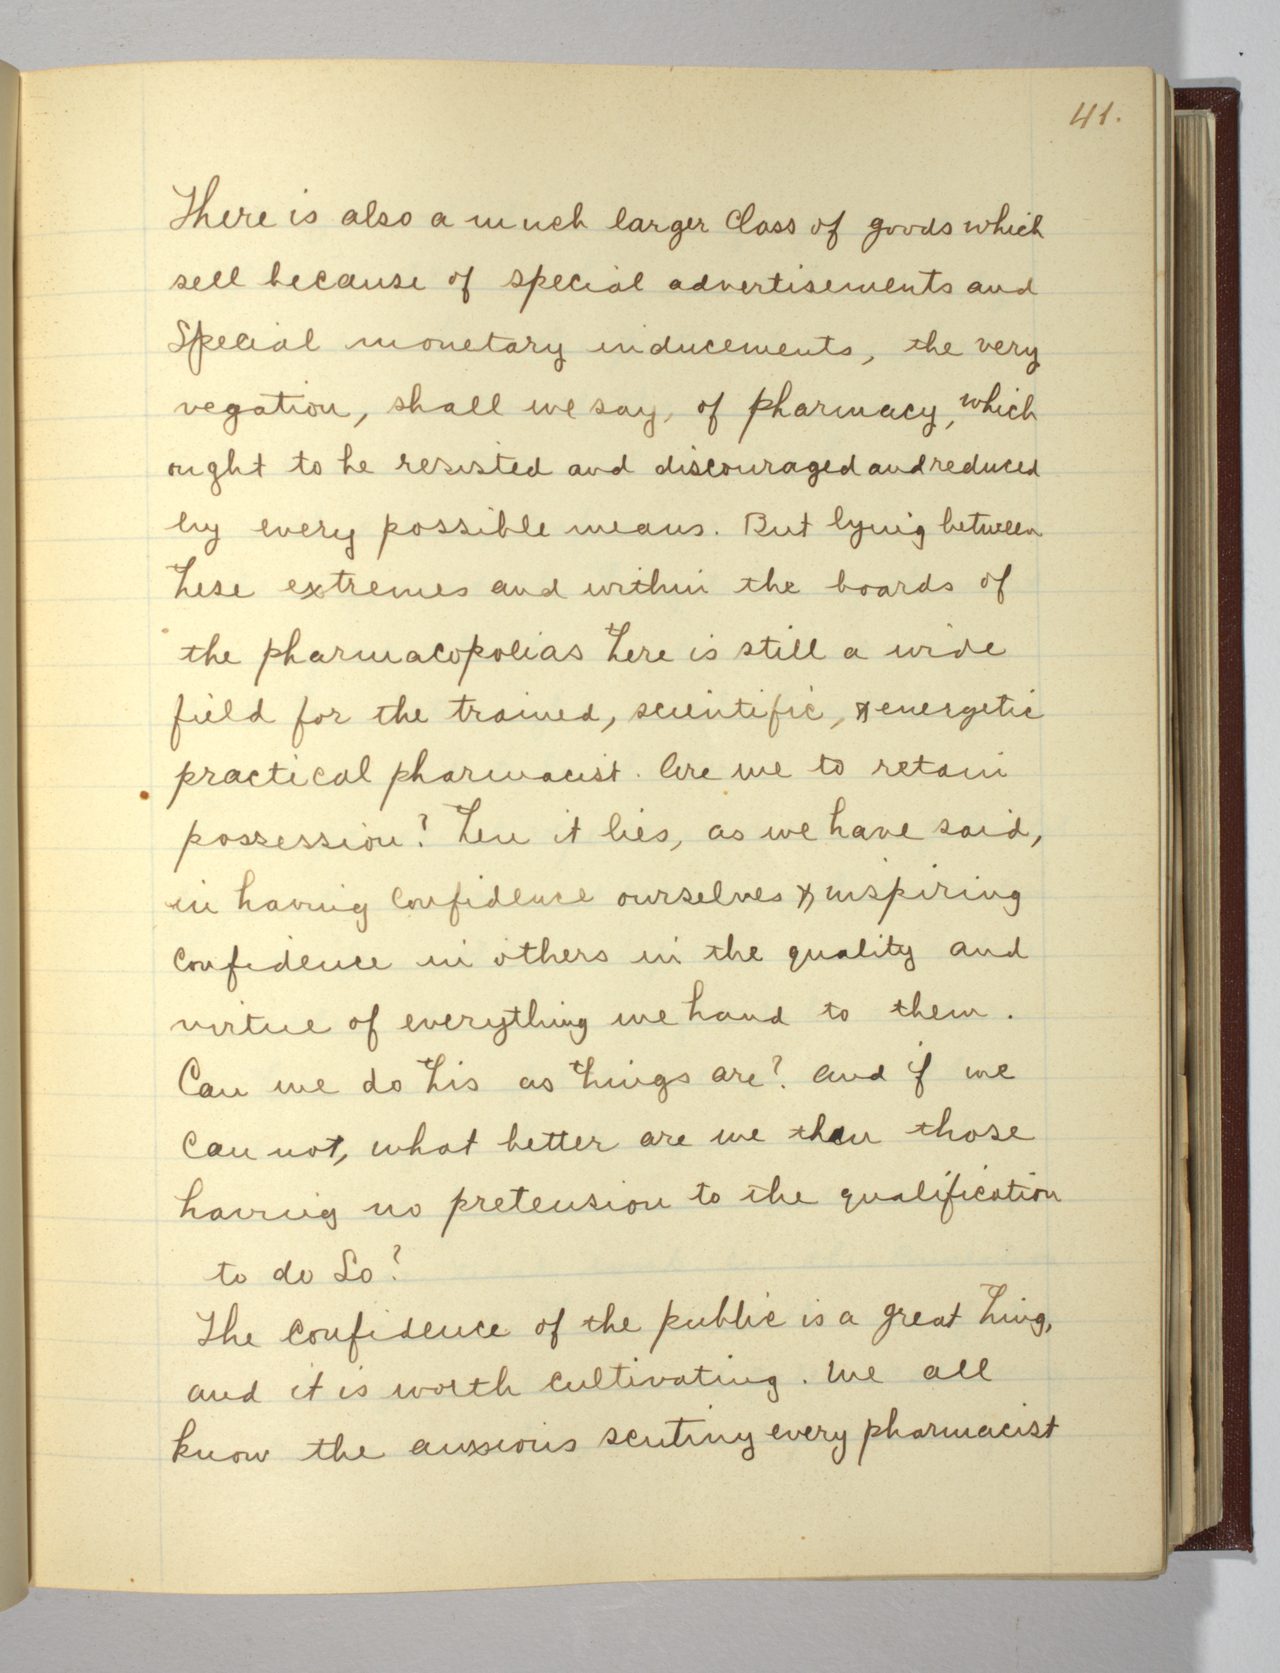 41.
There is also a much larger Class of goods which
sell because of special advertisements and
Special monetary inducements, the very
negation, shall we say, of pharmacy, which
ought to be resisted and discouraged and reduced
by every possible means. But lying between
these extremes and within the boards of
the pharmacopolias there is still a wide
field for the trained, scientific, & energetic
practical pharmacist. Are we to retain
possession? Then it lies, as we have said,
in having Confidence ourselves & inspiring
Confidence in others in the quality and
virtue of everything we hand to them.
Can we do this as things are? And if we
Can not, what better are we than those
having no pretension to the qualification
to do So?
The Confidence of the public is a great thing,
and it is worth Cultivating. We all
know the anxious scutiny every pharmacist